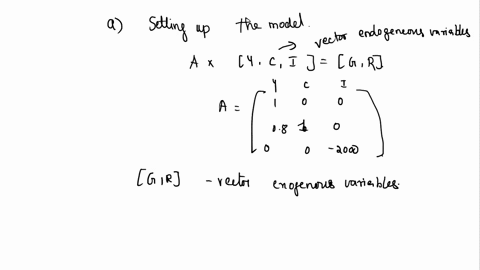 a) Setting up the model.
vector endogeneous variables
A x [Y, C, I] = [G, R]
Y C I
1 0 0
A =
0.8 1 0
0 0 -2000
[G, R] - vector exogenous variables.